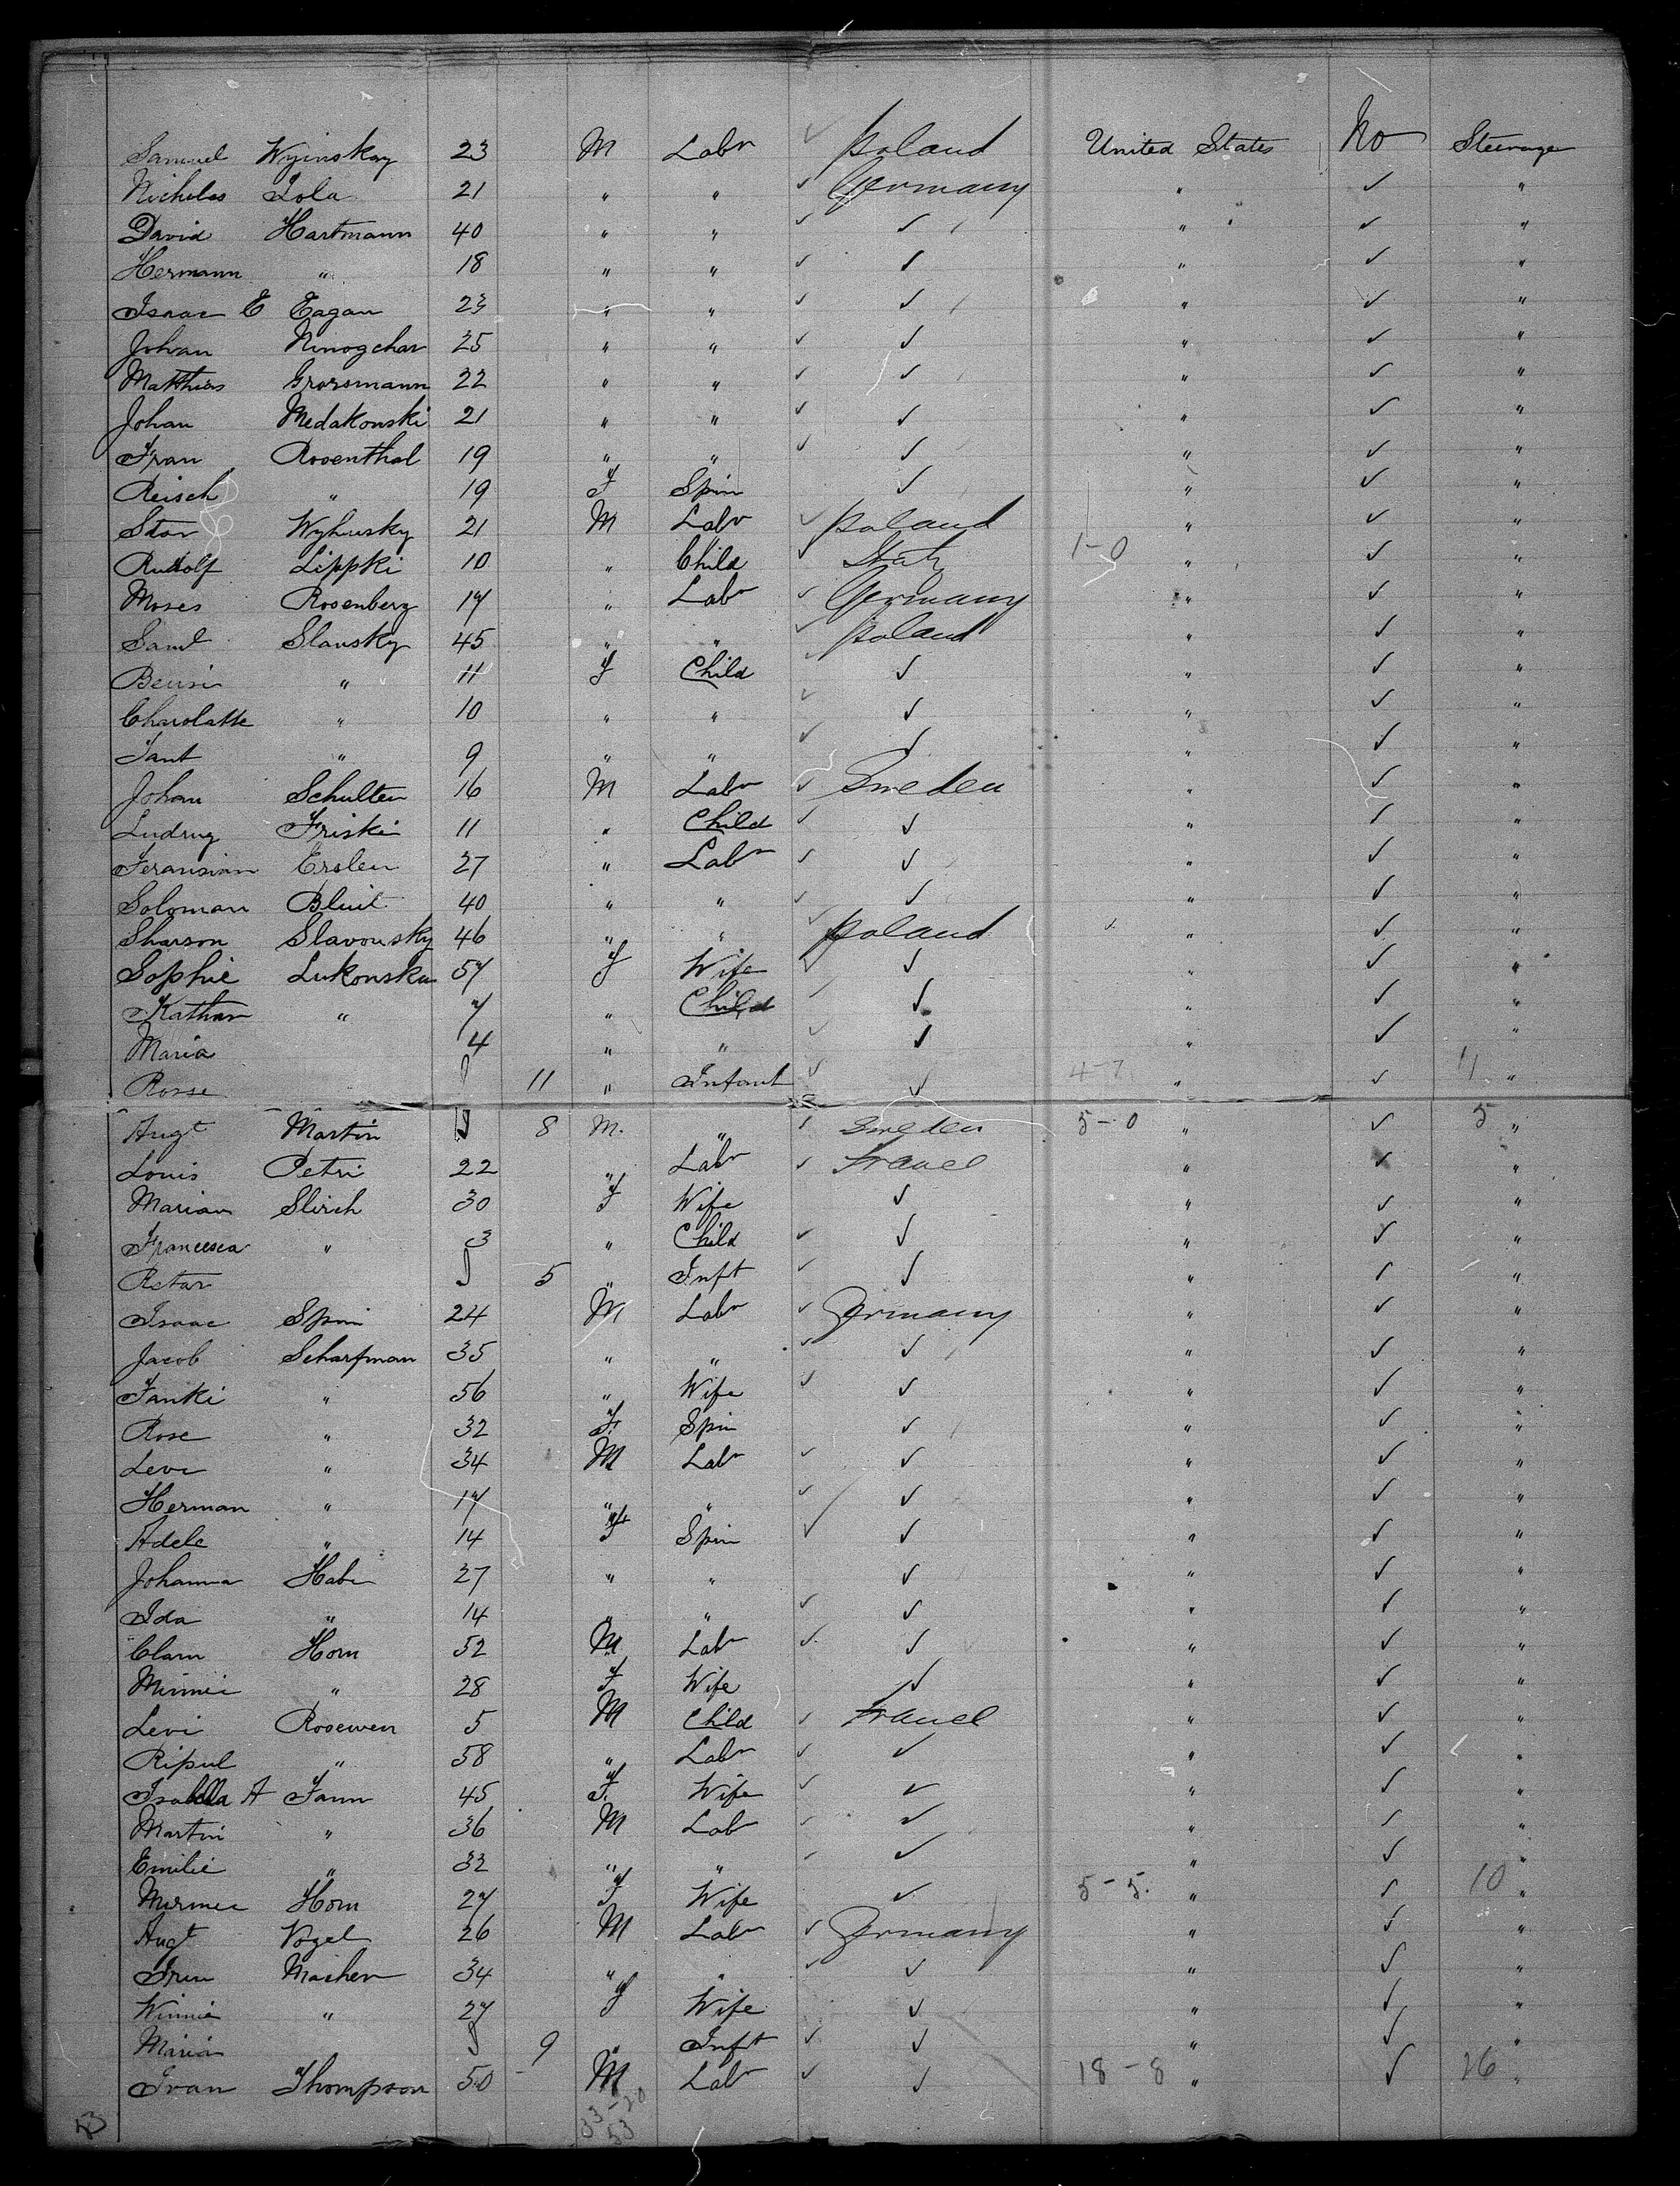 Samuel Wyinskay 23 M Labr ✓ Poland United States No Steerage
Nicholas Lola 21 " " ✓ Germany " ✓ "
David Hartmann 40 " " ✓ ✓ " ✓ "
Hermann " 18 " " ✓ ✓ " ✓ "
Isaac E Eagan 23 " " ✓ ✓ " ✓ "
Johan Ninogchar 25 " " ✓ ✓ " ✓ "
Matthias Grossmann 22 " " ✓ ✓ " ✓ "
Johan Medakonski 21 " " ✓ ✓ " ✓ "
Fran Rosenthal 19 " " ✓ ✓ " ✓ "
Reisch " 19 F Spin ✓ " ✓ "
Stor Wyhusky 21 M Labr ✓ Poland " ✓ "
Rudolf Lippki 10 " Child ✓ Italy 1-0 " ✓ "
Moses Rosenberg 17 " Labr ✓ Germany " ✓ "
Saml Slansky 45 " " ✓ Poland " ✓ "
Beusi " 11 F Child ✓ ✓ " ✓ "
Charlatte " 10 " " ✓ ✓ " ✓ "
Tant " 9 " " ✓ ✓ " ✓ "
Johan Schulten 16 M Labr ✓ Sweden " ✓ "
Ludrug Friski 11 " Child ✓ ✓ " ✓ "
Feransian Erslen 27 " Labr ✓ ✓ " ✓ "
Soloman Bluit 40 " " ✓ ✓ " ✓ "
Sharson Slavousky 46 " " ✓ Poland " ✓ "
Sophie Lukonska 57 F Wife ✓ ✓ " ✓ "
Kathar " 7 " Child ✓ ✓ " ✓ "
Maria 4 " " ✓ ✓ " ✓ "
Rosse 11 " Infant ✓ ✓ 4-7 " ✓ 11 "
Augt Martin 8 M. " ✓ Sweden 5-0 " ✓ 5 "
Louis Petri 22 " Labr ✓ France " ✓ "
Marian Slirch 30 F Wife ✓ " ✓ "
Francesca " 3 " Child ✓ ✓ " ✓ "
Retar 5 " Inft ✓ ✓ " ✓ "
Isaac Spin 24 M Labr ✓ Germany " ✓ "
Jacob Scharfman 35 " " ✓ ✓ " ✓ "
Fanki " 56 " Wife ✓ ✓ " ✓ "
Rose " 32 F. Spin ✓ " ✓ "
Levi " 34 M Labr ✓ ✓ " ✓ "
Herman " 17 " " ✓ ✓ " ✓ "
Adele " 14 F Spin ✓ ✓ " ✓ "
Johanna Habe 27 " " ✓ " ✓ "
Ida " 14 " " ✓ ✓ " ✓ "
Clam Horn 52 M Labr ✓ ✓ " ✓ "
Minnie " 28 F Wife ✓ " ✓ "
Levi Rosewen 5 M Child ✓ France " ✓ "
Ripul " 58 " Labr ✓ ✓ " ✓ "
Isabella A Fann 45 F. Wife ✓ ✓ " ✓ "
Martin " 36 M Labr ✓ ✓ " ✓ "
Emilie " 32 " " ✓ ✓ " ✓ "
Minnee Horn 27 F Wife ✓ 5-5. " ✓ 10 "
Augt Vogel 26 M Labr ✓ Germany " ✓ "
Iren Macher 34 " " ✓ ✓ " ✓ "
Winnie " 27 F Wife ✓ " ✓ "
Maria 9 " Inft ✓ ✓ " ✓ "
Ivan Thompson 50 M Labr ✓ ✓ 18-8 " ✓ 26 "
33-20
53 53